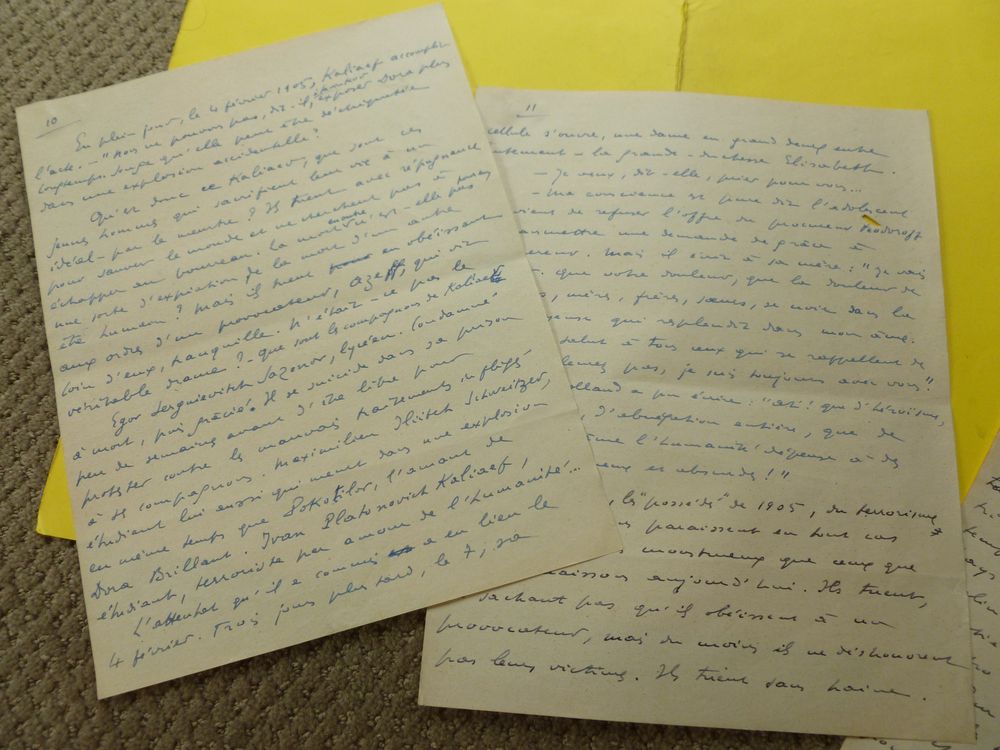 10
En plein jour, le 4 février 1905, Kaliaef accomplit
l'acte. — "Nous ne pouvons pas, dit-il, exposer Dora plus
longtemps. Songe qu'elle peut être déchiquetée
dans une explosion accidentelle?
Qu'est donc ce Kaliaev, que sont ces
jeunes hommes qui sacrifient leur vie à un
idéal - par le meurtre? Ils tuent avec répugnance
pour sauver le monde et ne cherchent pas à
échapper au La mort est-elle pas,
une sorte d'expiation de la mort d'un autre
être humain? Mais ils tuent en obéissant
aux ordres d'un provocateur, Azeff, qui vit
loin d'eux, tranquille. N'était-ce pas le
véritable drame? Que sont les compagnons de Kaliaef
Egor Serguievitch Sazonov, lycéen. Condamné
à mort, puis gracié. Il se suicide dans sa prison
peu de semaines avant d'être libre pour
protester contre les mauvais traitements infligés
à ses compagnons. Maximilien Iliitch Schweitzer,
étudiant lui aussi qui meurt dans une explosion
en même temps que Pokotilov, l'amant de
Dora Brillant. Ivan Platonovich Kaliaef,
étudiant, terroriste par amour de l'humanité...
L'attentat qu'il a commis a eu lieu le
4 février. Trois jours plus tard, le 7, sa
11
cellule s'ouvre, une dame en grand deuil entre
- la grande-duchesse Elisabeth.
— Je veux, dit-elle, prier pour vous...
- Ma conscience est pure dit l'adolescent
vient de refuser l'offre du procureur Feodoroff
transmettre une demande de grâce à
Mais il écrit à sa mère: "Je vais
que votre douleur, que la douleur de
mères, frères, sœurs, se noie dans la
qui resplendit dans mon âme.
salut à tous ceux qui se rappellent de
pas, je suis toujours avec vous!"
a pu écrire: "Ah! que d'héroïsme,
d'abnégation entière, que de
l'humanité dépense à des
et absurdes!"
les "possédés" de 1905, du terrorisme
paraissent en tout cas
monstrueux que ceux que
aujourd'hui. Ils tuent,
sachant pas qu'ils obéissent à un
provocateur, mais du moins ils ne déshonorent
pas leurs victimes. Ils tuent sans haine.